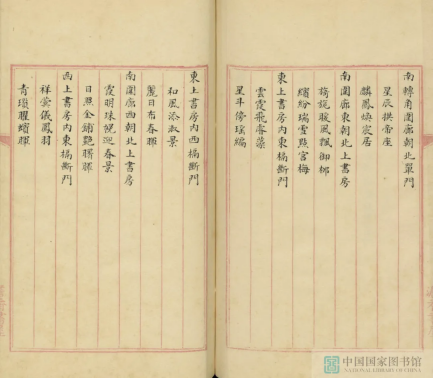 南轉角圍廊朝北單門
星辰拱帝座
麟鳳煥宸居
南圍廊東朝北上書房
旖旎暖風飄御柳
繽紛瑞雪點宮梅
東上書房內東槅斷門
雲霞飛睿藻
星斗傍瑤編
東上書房內西槅斷門
和風添淑景
麗日布春暉
南圍廊西朝北上書房
霞明珠幌迎春景
日照金鋪艷曙暉
西上書房內東槅斷門
祥雲儀鳳羽
青瑣耀螭頭
中国国家图书馆
NATIONAL LIBRARY OF CHINA